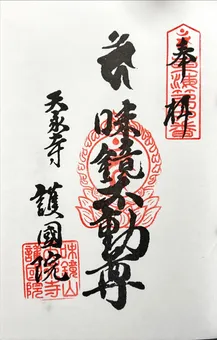 奉拝
味鏡不動尊
天永寺
護國院
味鏡山
天永寺
護國院